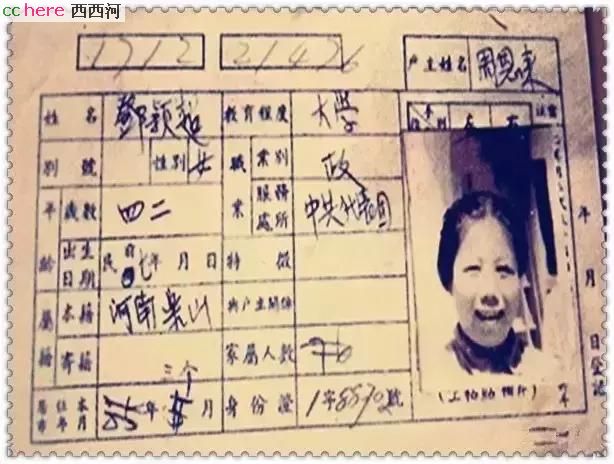 cchere 西西河
1712 21426 戶主姓名 周恩来
姓名 鄧颖超 教育程度 大学
別號 性別 女 職業 業別 政
年齡 歲數 四二 服務處所 中共代表团
出生日期 民前 七年 月 日 特徵
屬籍 本籍 河南 光山 與戶主關係
寄籍 家屬人數
三个
居住本市年月 年 月 身份證 1字8570號
年 月 日登記